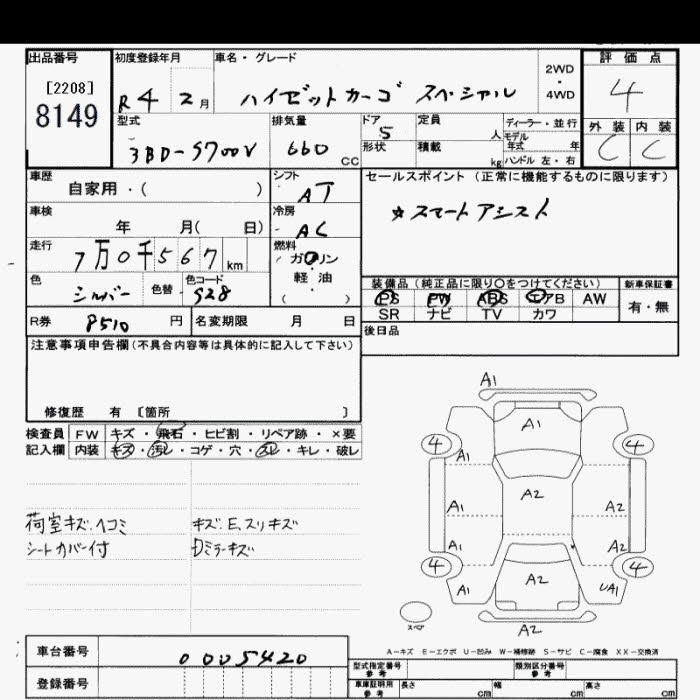 出品番号
[2208]
8149
初度登録年月
R 4 2 月
車名・グレード
ハイゼットカーゴ スペシャル
2WD
・
4WD
評価点
4
型式
3BD-S700V
排気量
660 CC
ドア 5
形状
定員 人
積載 kg
ディーラー・並行
モデル年式 年
ハンドル 左・右
外装 内装
C C
車歴
自家用・( )
シフト
AT
セールスポイント (正常に機能するものに限ります)
☆スマートアシスト
車検
年 月( 日)
冷房
AC
走行
7万0千567 km
燃料
ガソリン
軽油
( )
色
シルバー
色替
色コード
S28
装備品 (純正品に限り○をつけてください)
新車保証書
PS PW ABS エアB AW
有・無
SR ナビ TV カワ
R券 8510 円
名変期限 月 日
後日品
注意事項申告欄(不具合内容等は具体的に記入して下さい)
修復歴 有 [箇所 ]
検査員 FW キズ・飛石・ヒビ割・リペア跡・×要
記入欄 内装 キズ・汚レ・コゲ・穴・スレ・キレ・破レ
荷室キズ.ヘコミ
シートカバー付
キズ.E.スリキズ
Dミラーキズ
A1
A1
4 4
A1
A2
A1 A2
A1 A2
4 4
A1 A2 UA1
スペア
A2
A-キズ E-エクボ U-凹み W-補修跡 S-サビ C-腐食 XX-交換済
車台番号
0005420
登録番号
型式指定番号
参考
類別区分番号
参考
車庫証明用
参考
長さ cm 幅 cm 高さ cm